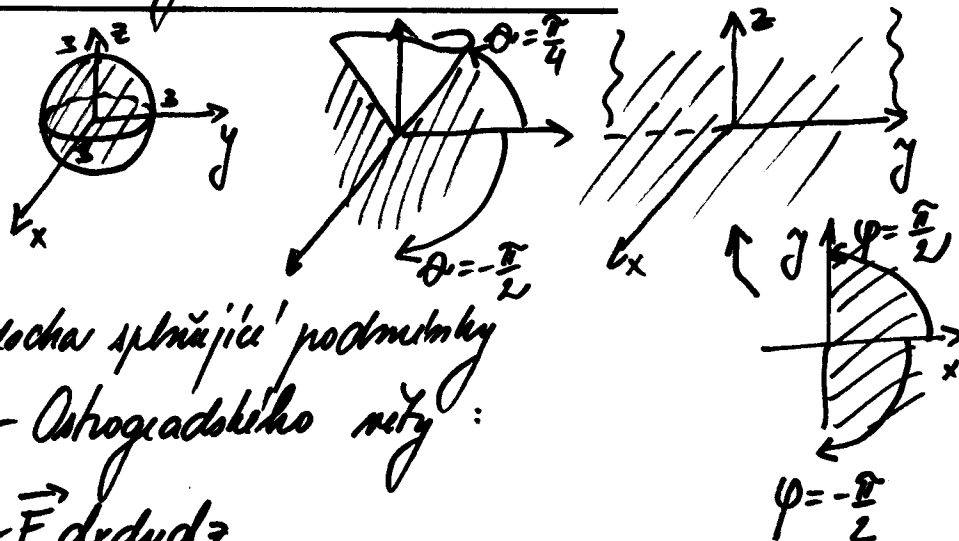 3 z
3
3
y
x
θ = π/4
θ = -π/2
z
y
x
y φ = π/2
x
φ = -π/2
splňující podmínky
- Ostrogradského věty :
F dxdydz